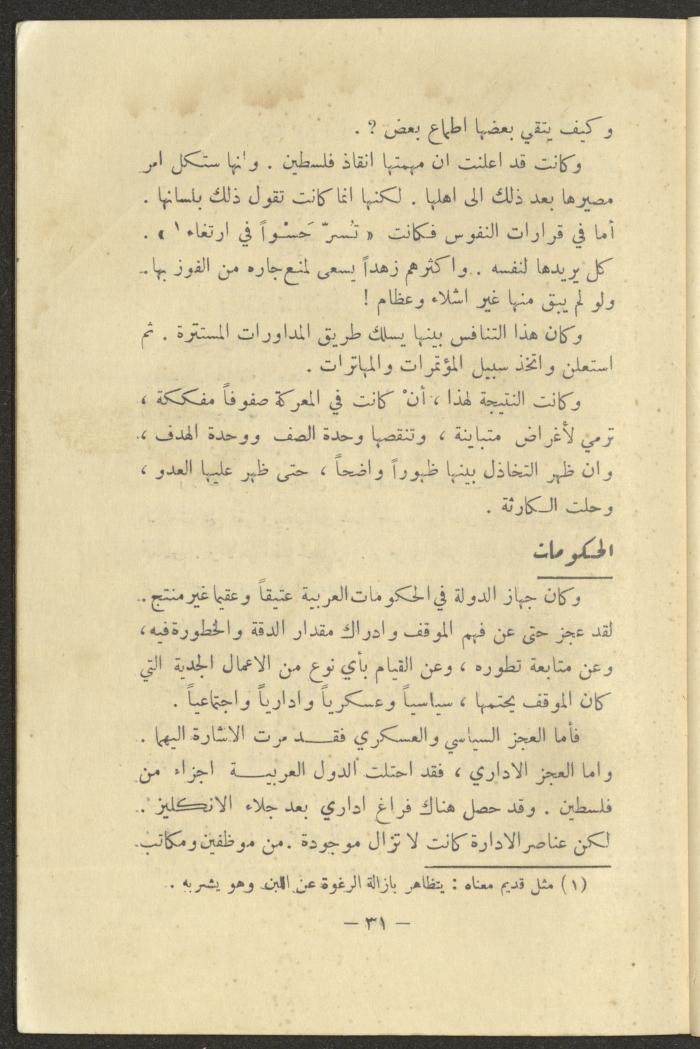 وكيف يتقي بعضها اطماع بعض ? .
وكانت قد اعلنت ان مهمتها انقاذ فلسطين . وانها ستكل امر
مصيرها بعد ذلك الى اهلها . لكنها انما كانت تقول ذلك بلسانها .
أما في قرارات النفوس فكانت « تُسرّ حَسْواً في ارتغاء ١ » .
كل يريدها لنفسه . واكثرهم زهداً يسعى لمنع جاره من الفوز بها .
ولو لم يبق منها غير اشلاء وعظام !
وكان هذا التنافس بينها يسلك طريق المداورات المستترة . ثم
استعلن واتخذ سبيل المؤتمرات والمهاترات .
وكانت النتيجة لهذا ، أنْ كانت في المعركة صفوفاً مفككة ،
ترمي لأغراض متباينة ، وتنقصها وحدة الصف ووحدة الهدف ،
وان ظهر التخاذل بينها ظهوراً واضحاً ، حتى ظهر عليها العدو ،
وحلت الكارثة .
الحكومات
وكان جهاز الدولة في الحكومات العربية عتيقاً وعقيما غير منتج .
لقد عجز حتى عن فهم الموقف وادراك مقدار الدقة والخطورة فيه ،
وعن متابعة تطوره ، وعن القيام بأي نوع من الاعمال الجدية التي
كان الموقف يحتمها ، سياسياً وعسكرياً وادارياً واجتماعياً .
فأما العجز السياسي والعسكري فقد مرت الاشارة اليهما .
واما العجز الاداري ، فقد احتلت الدول العربية اجزاء من
فلسطين . وقد حصل هناك فراغ اداري بعد جلاء الانكليز .
لكن عناصر الادارة كانت لا تزال موجودة . من موظفين ومكاتب
(١) مثل قديم معناه : يتظاهر بازالة الرغوة عن اللبن وهو يشربه .
— ٣١ —